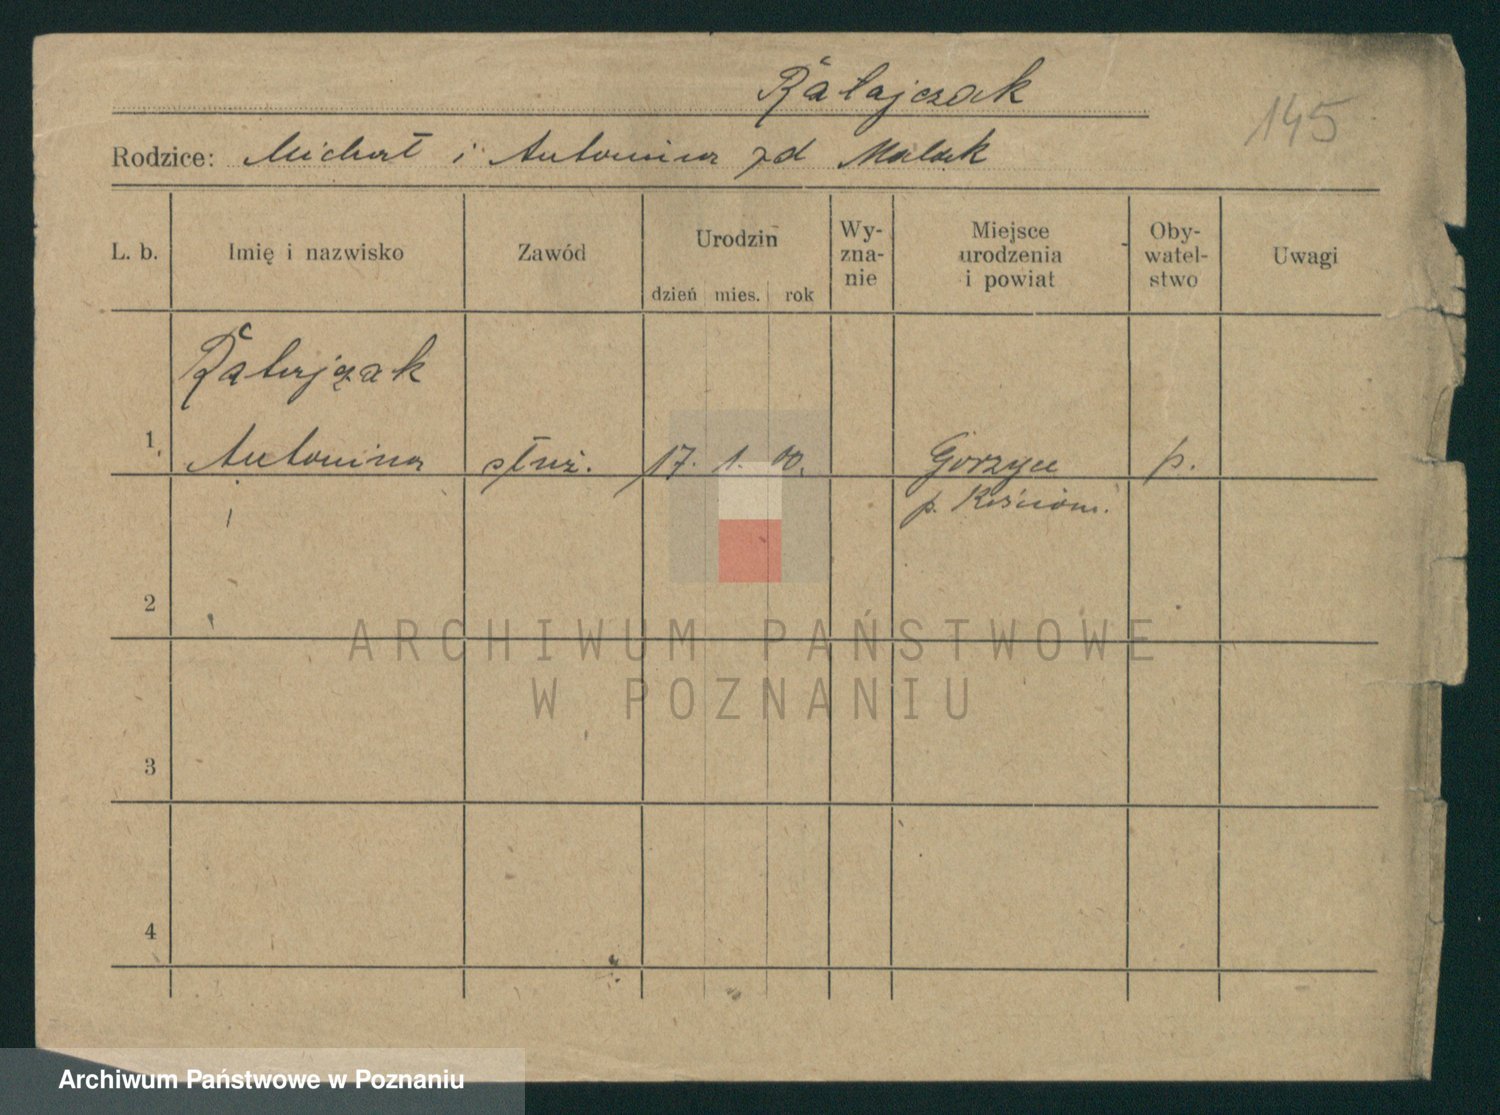 Ratajczak
145
Rodzice: Michał i Antonina zd Malak
L. b. Imię i nazwisko Zawód Urodzin dzień mies. rok Wy-zna-nie Miejsce urodzenia i powiat Oby-watel-stwo Uwagi
Ratajczak
1. Antonina służ. 17. 1. 00. Gorzyce p.
p. Kościan.
2
ARCHIWUM PAŃSTWOWE
W POZNANIU
3
4
Archiwum Państwowe w Poznaniu